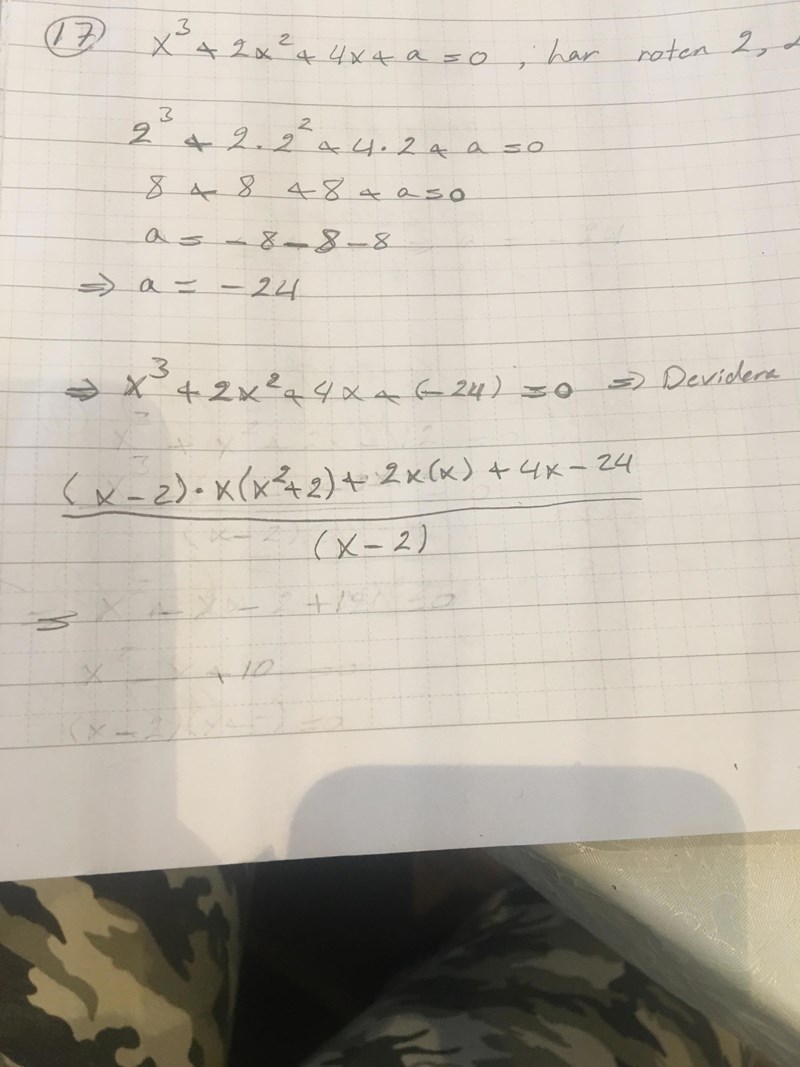 17 x³ + 2x² + 4x + a = 0, har roten 2,
2³ + 2·2² + 4·2 + a = 0
8 + 8 + 8 + a = 0
a = -8 - 8 - 8
⇒ a = -24
⇒ x³ + 2x² + 4x + (-24) = 0 ⇒ Devidera
(x-2)·x(x²+2) + 2x(x) + 4x - 24
(x-2)
⇒
x² - x + 10